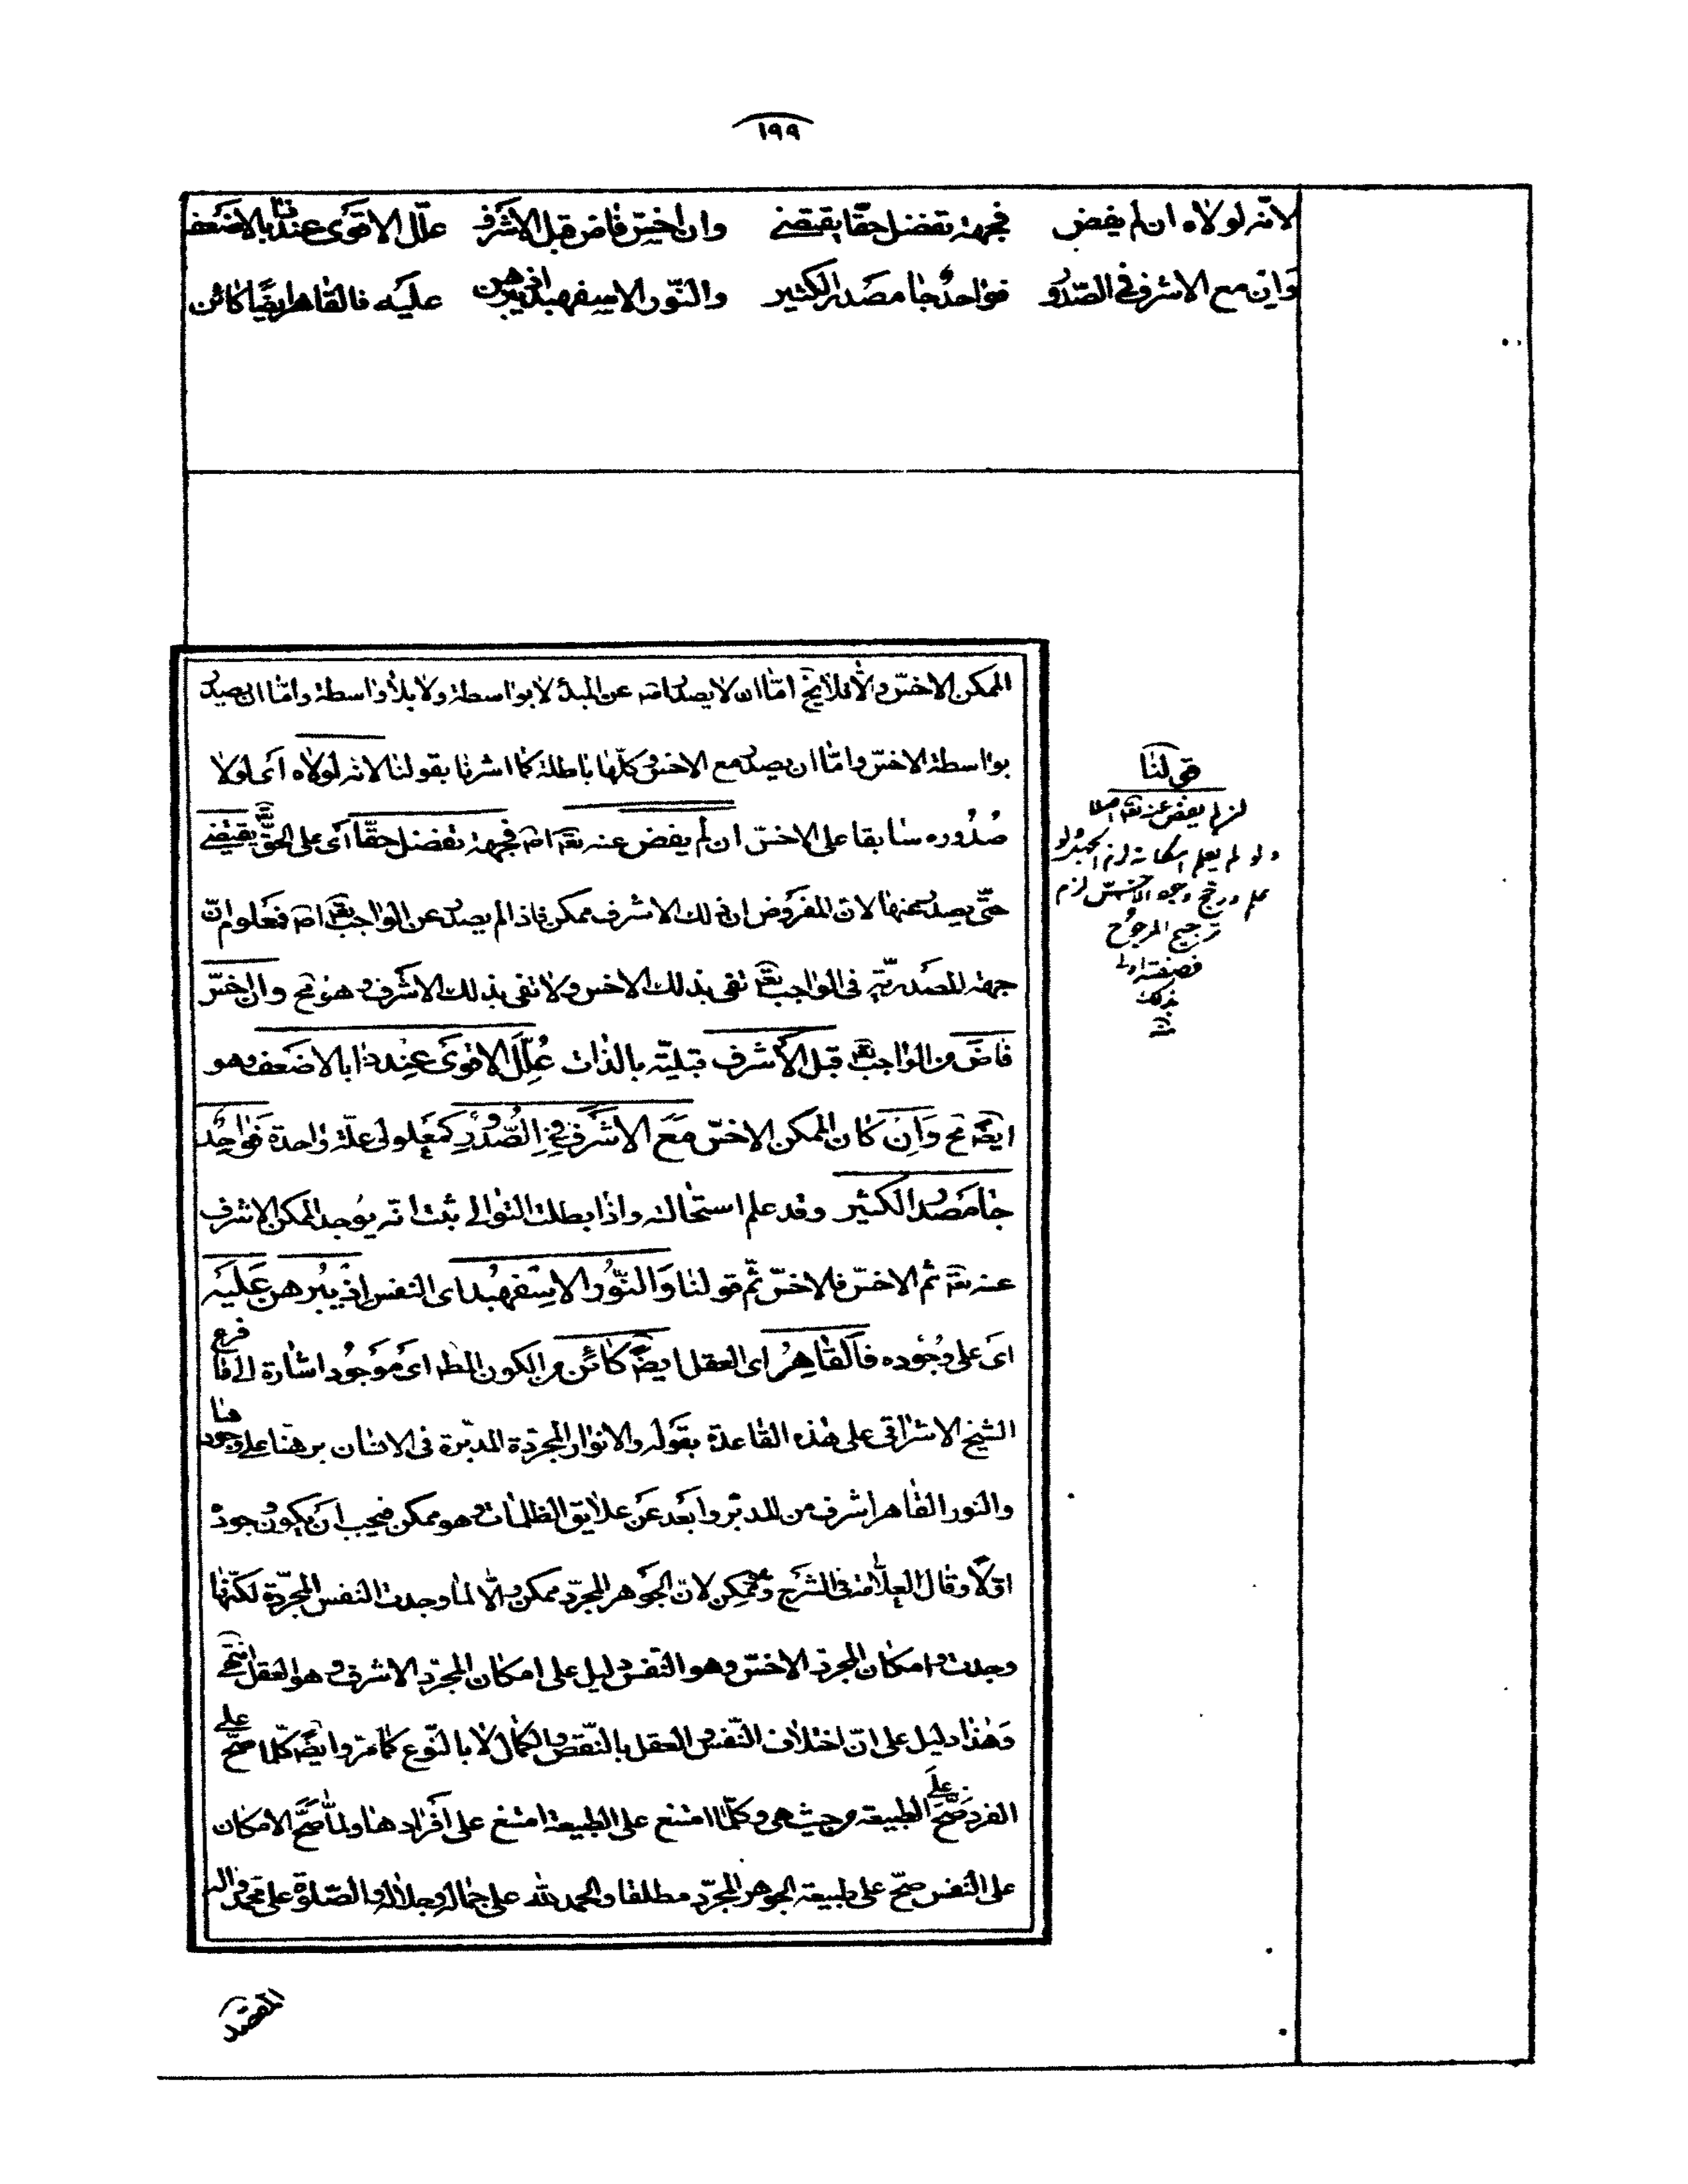 ١٩٩
لانّه لولاه ان لم يفض فجهة تفضل حقّا يقتضى وان اخسّ فاض قبل الاشرف علّل الاقوى عند ذا بالاضعف
وَاِن مع الاشرف فى الصّدُو فواحدٌ جا مصدر الكثير والنّور الاسفهبد اذ يبرهن عليَه فالقاهر ايضًا كائن
الممكن الاخسّ والّا فلا يخ امّا ان لا يصدر اصّه عن المبدأ لا بواسطة ولا بلا واسطة وامّا ان يصدر
بواسطة الاخسّ وامّا ان يصدر مع الاخس وكلّها باطلة كما اشرنا بقولنا لانّه لولاه اَى لولا
صُدُوره سابقا على الاخسّ ان لم يفض عنه تعه اصه فجهة تفضل حقّا اى على الحقّ تعه يقتضى
حتّى يصدر عنها لان المفروض ان ذلك الاشرف ممكن فاذا لم يصدر عن الواجب تعه اصه فمعلوم انّ
جهة المصدريّة فى الواجب تعه تفى بذلك الاخس ولا تفى بذلك الاشرف وهذا مح وان اخسّ
فاضَ من الواجب تعه قبل الاَشرف قبليّة بالذات عُلّلَ الاقوىَ عِند ذا بالاضعف وهو
ايضَه مح وَاِن كان الممكن الاخسّ مَعَ الاشَرف فى الصُّدُورِ كمعلولى علّة واحدة فواحِدٌ
جا مَصدر الكثير وقد علم استحالته واذا بطلت التوالى ثبت انّه يوُجد الممكن الاشرف
عنه تعه ثم الاخسّ فالاخسّ ثمّ قولنا وَالنّورُ الاسِفهبُد اى النفس اِذ يُبرهن عَليَه
اىَ على وجُوده فاَلقاهِرُ اى العقل ايضًه كائنٌ من الكون المط اىَ موَجُود اشارة الى ما فرع
الشيخ الاشراقى على هذه القاعدة بقوَله والانوار المجرّدة المدبّرة فى الانسان برهنّا على وجودها
والنور القاهر اشرف من المدبّر وابعَد عَن علايق الظلمات وهو ممكن فيجب اَن يكون وجوده
اوّلًا وقال العلّامة فى الشرَح وهو ممكِن لانّ الجوَهر المجرّد ممكن والّا لما وجدت النفس المجرّدة لكنّها
وجدت وامكان المجرد الاخسّ وهو النفس دليل على امكان المجرّد الاشرف وهو العقل انتهى
وَهذا دليل على انّ اختلاف النّفس والعقل بالنّقص والكمال لا بالنّوع كما مرّ وايضًه كلّما صحّ على
الفرد صَحّ علَى الطبيعة من حيث هى وكلّما امتنع على الطبيعة امتنع على اَفرادها ولمّا صَحّ الامكان
على النفس صحّ على طبيعة الجوهر المجرّد مطلقا والحمد لله على جماله وجلاله والصّلوة على محمّد واله
قولنا
ان لم يفض عنه تعه اصلا
ولو لم يعلم امكانه لزم الجهل ولو
علم ورجّح وجود الاخسّ لزم
ترجيح المرجوح
المقصد